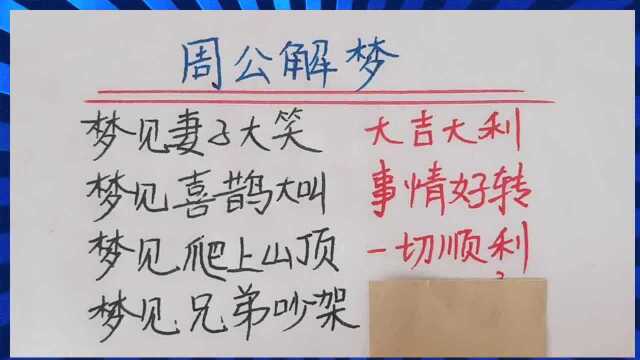 周公解梦
梦见妻子大笑 大吉大利
梦见喜鹊大叫 事情好转
梦见爬上山顶 一切顺利
梦见兄弟吵架